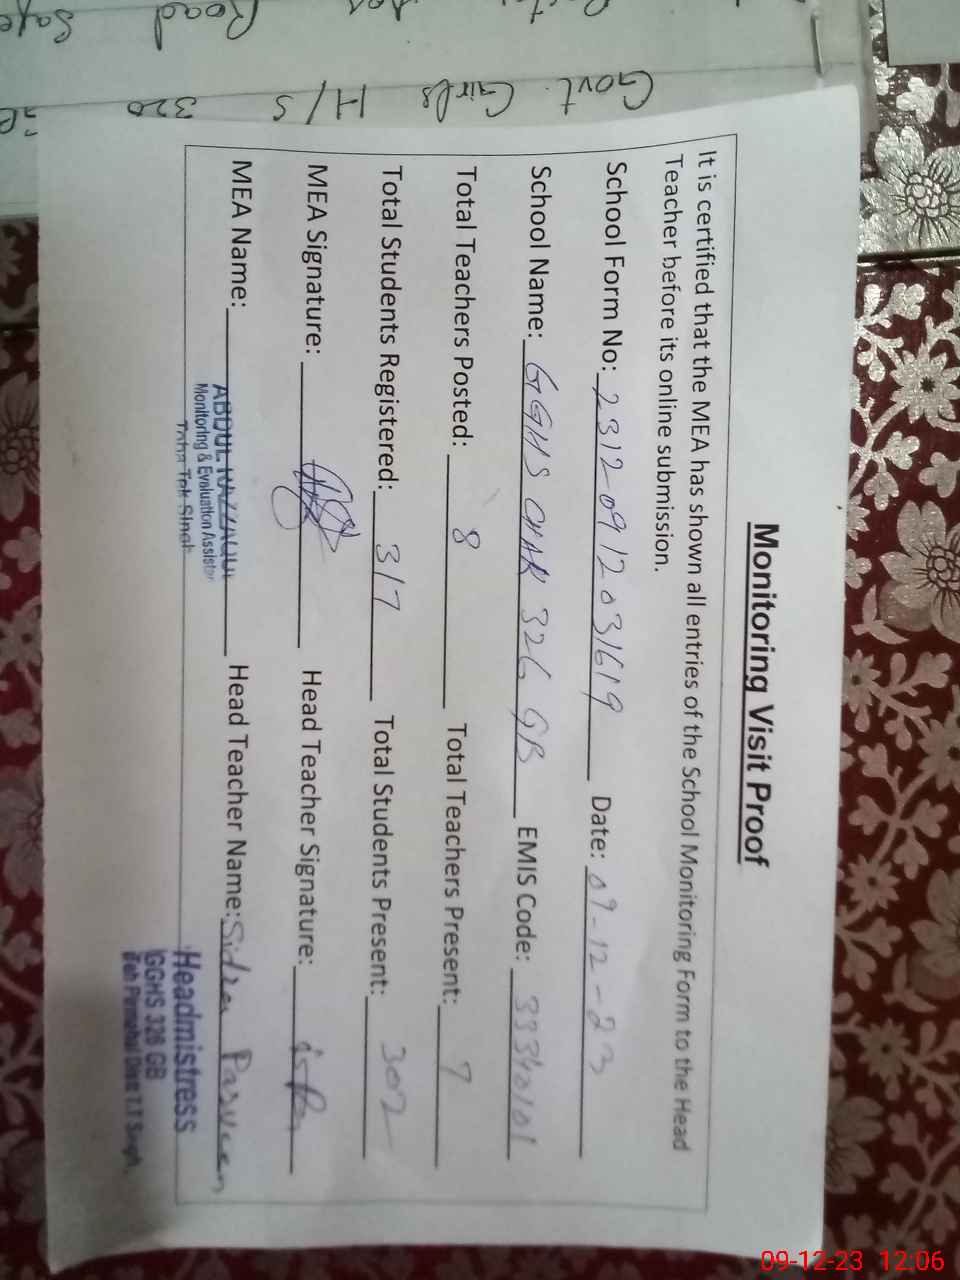 Monitoring Visit Proof
It is certified that the MEA has shown all entries of the School Monitoring Form to the Head
Teacher before its online submission.
School Form No: 2312-0912031619 Date: 09-12-23
School Name: GGHS CHAK 326 GB EMIS Code: 33340101
Total Teachers Posted: 8 Total Teachers Present: 7
Total Students Registered: 317 Total Students Present: 302
MEA Signature: Head Teacher Signature:
MEA Name: ABDUL RAZZAQ Head Teacher Name: Sidra Parveen
Monitoring & Evaluation Assistan
Toba Tek Singh
Headmistress
GGHS 326 GB
Teh Pirmahal Distt T.T Singh
Govt. Girls H/S 320
Road Safe
09-12-23 12:06